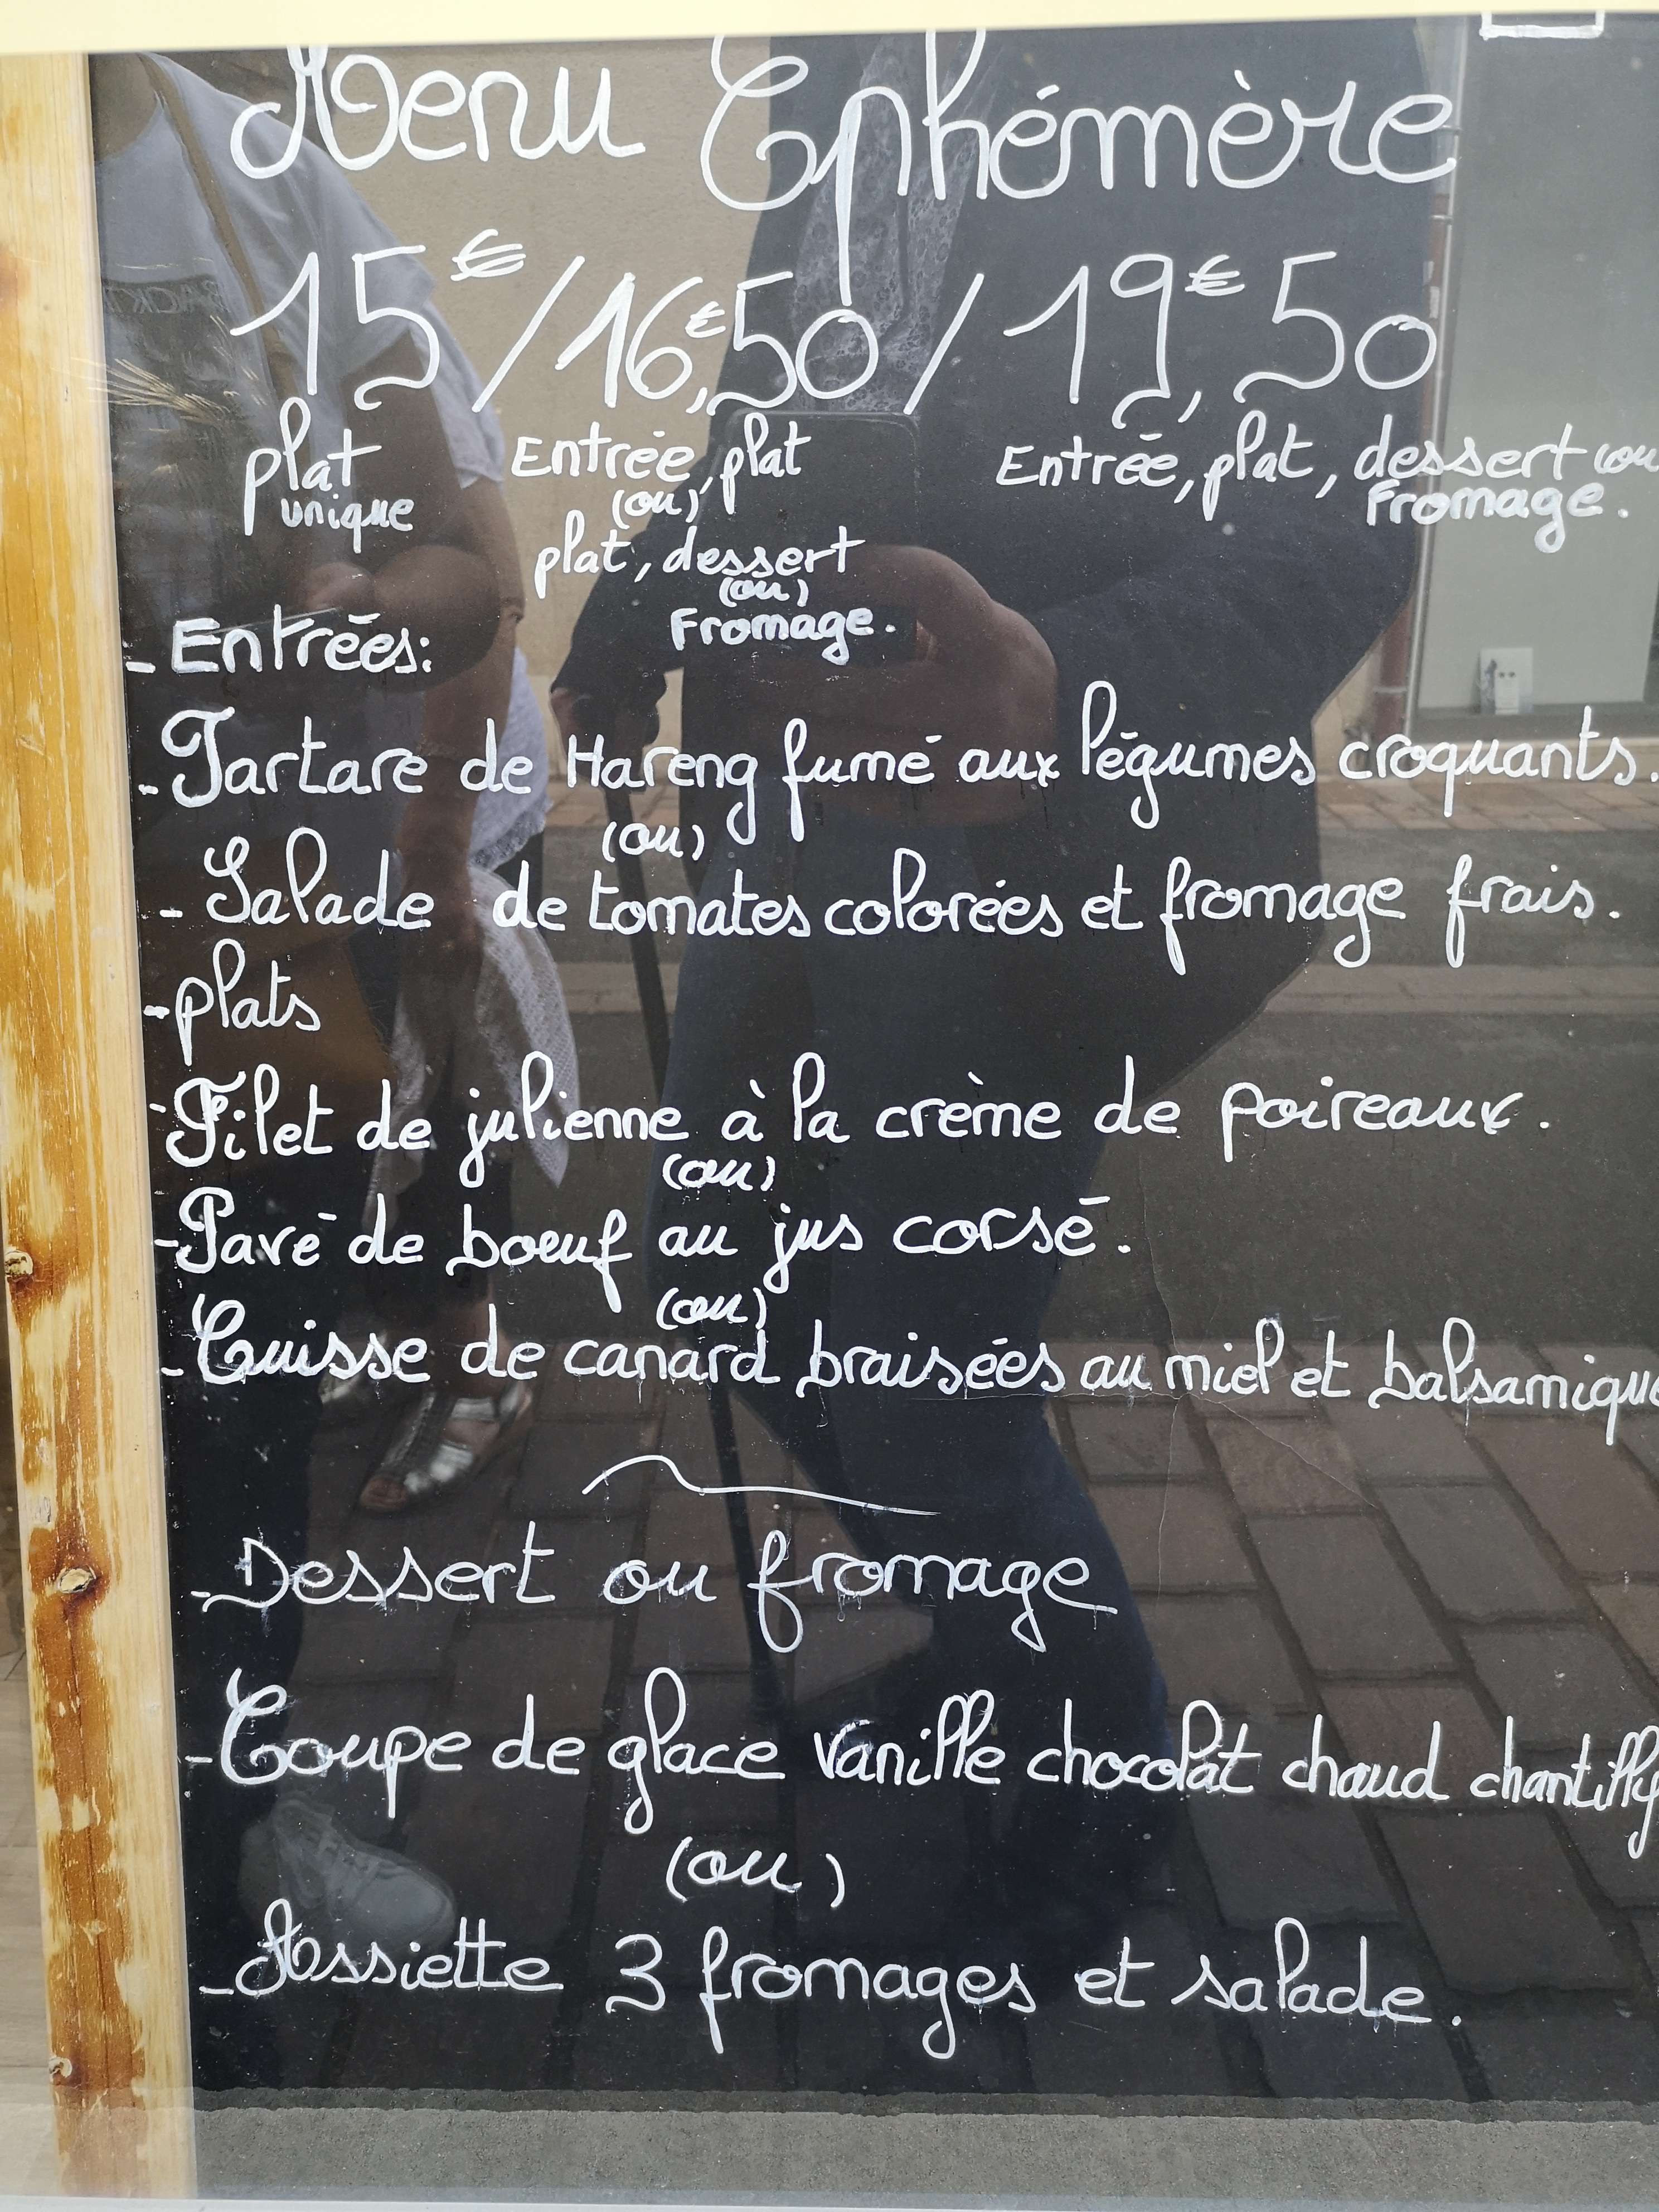 Menu Ephémère
15€ / 16€,50 / 19€,50
plat unique
Entrée, plat
(ou)
plat, dessert
(ou)
Fromage.
Entrée, plat, dessert (ou
Fromage.
- Entrées:
- Tartare de Hareng fumé aux légumes croquants.
(ou)
- Salade de tomates colorées et fromage frais.
- plats
- Filet de julienne à la crème de poireaux.
(ou)
- Pavé de boeuf au jus corsé.
(ou)
- Cuisse de canard braisées au miel et balsamique
- Dessert ou fromage
- Coupe de glace vanille chocolat chaud chantilly
(ou)
- Assiette 3 fromages et salade.